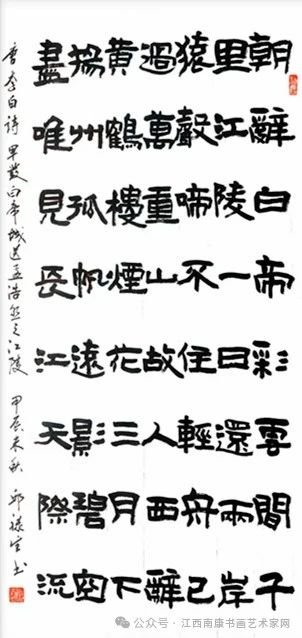 朝辭白帝彩雲間千
里江陵一日還兩岸
猿聲啼不住輕舟已
過萬重山故人西辭
黃鶴樓煙花三月下
揚州孤帆遠影碧空
盡唯見長江天際流
唐李白詩早發白帝城送孟浩然之江陵 甲辰末秋 邱禄生书
公众号·江西南康书画艺术家网